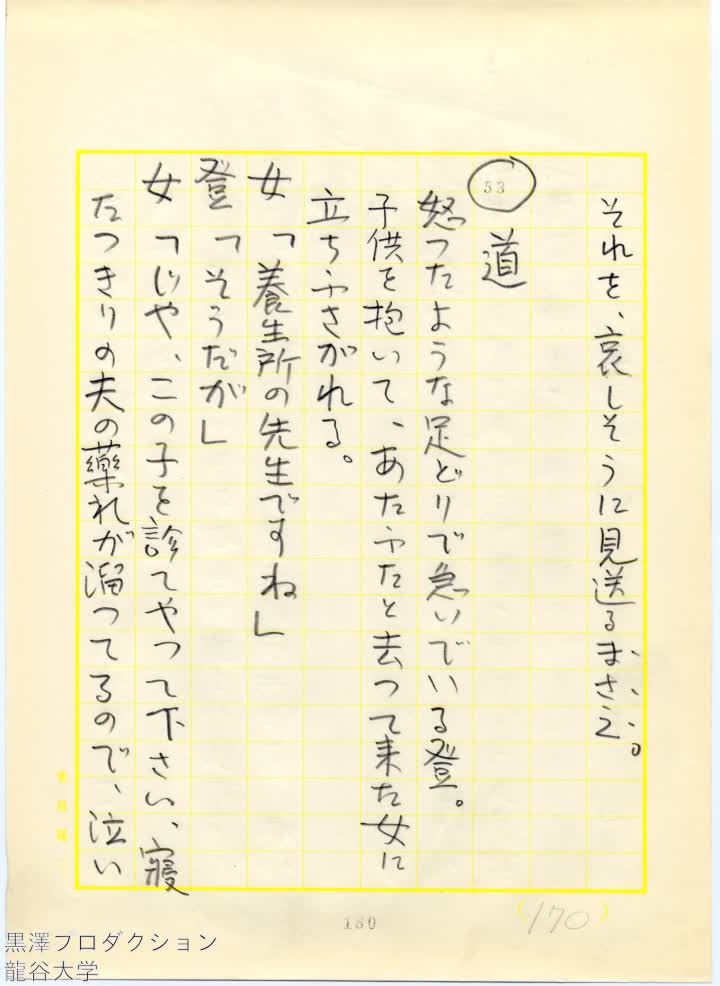 それを、哀しそうに見送るまさえ。
53 道
怒ったような足どりで急いでいる登。
子供を抱いて、あたふたと去って来た女に
立ちふさがれる。
女「養生所の先生ですね」
登「そうだが」
女「じゃ、この子を診てやって下さい、寢
たっきりの夫の藥礼が溜ってるので、泣い
180
(170)
黒澤プロダクション
龍谷大学